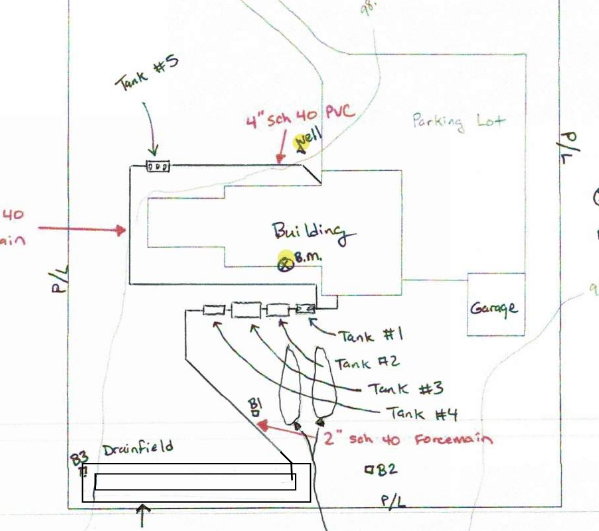 98.
Tank #5
4" sch 40 PVC
well
Parking Lot
P/L
40
ain
Building
B.M.
P/L
Garage
9
Tank #1
Tank #2
Tank #3
Tank #4
B1
2" sch 40 Forcemain
Drainfield
B3
B2
P/L